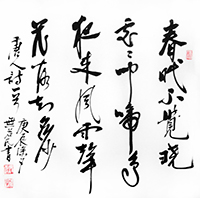 春眠不覺曉
處々聞啼鳥
夜来風雨聲
花落知多少
唐人詩一首
庚辰